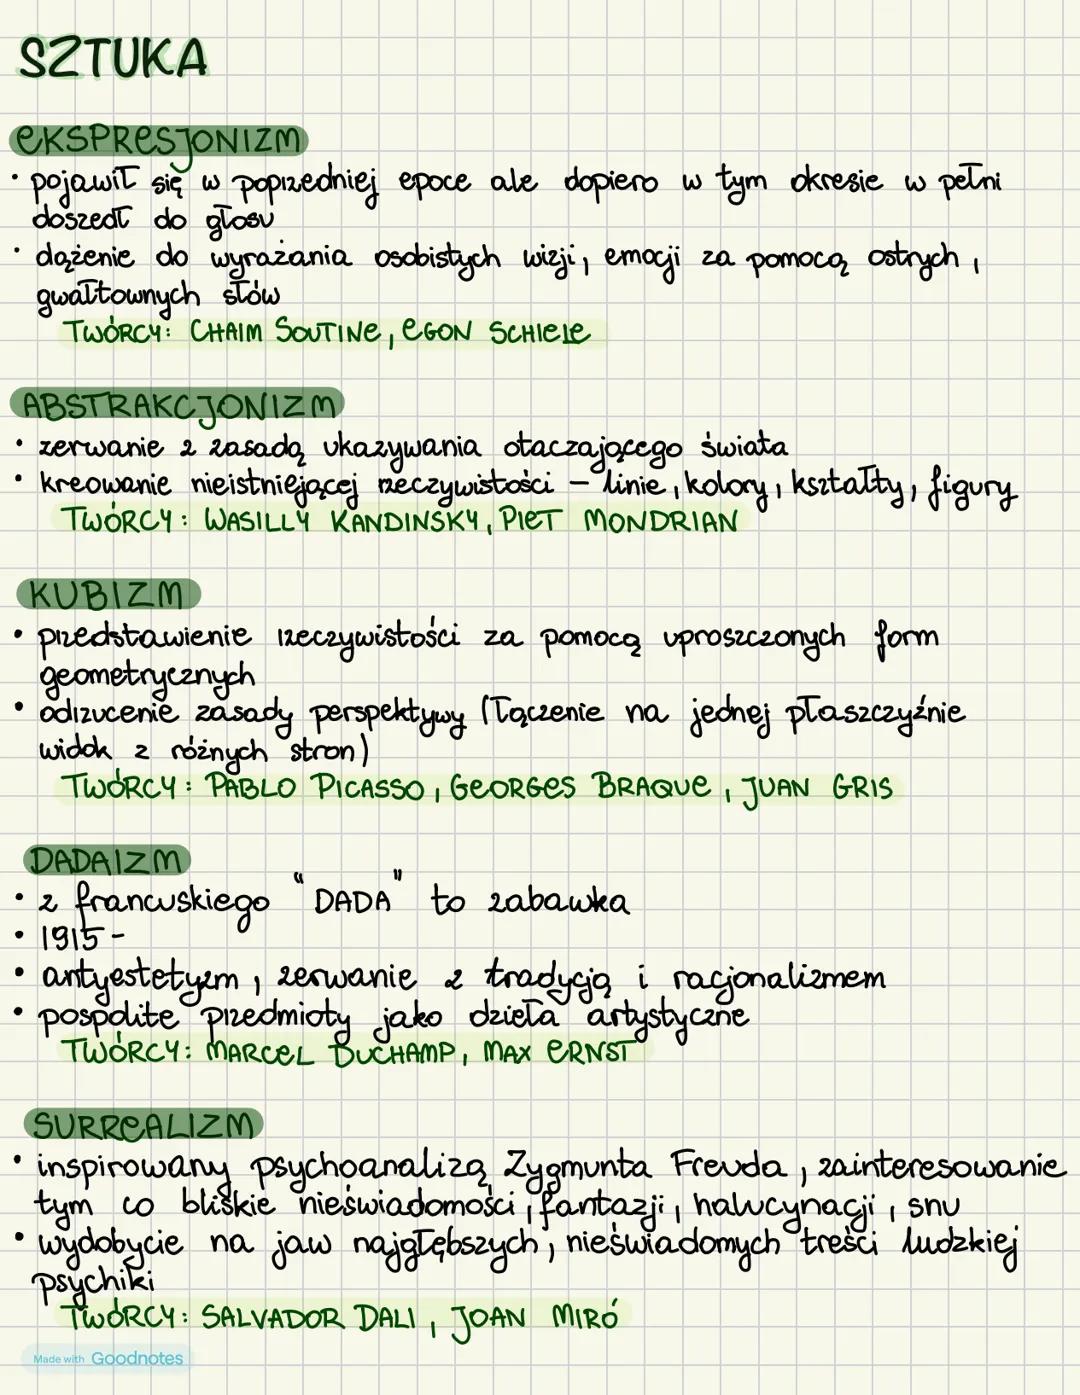 SZTUKA
EKSPRESJONIZM
• pojawił się w poprzedniej epoce ale dopiero w tym okresie w pełni
doszedł do głosu
• dążenie do wyrażania osobistych wizji, emocji za pomocą ostrych,
gwałtownych słów
TWÓRCY: CHAIM SOUTINE, EGON SCHIELE
ABSTRAKCJONIZM
• zerwanie z zasadą ukazywania otaczającego świata
• kreowanie nieistniejącej rzeczywistości – linie, kolory, kształty, figury
TWÓRCY: WASILLY KANDINSKY, PIET MONDRIAN
KUBIZM
• przedstawienie rzeczywistości za pomocą uproszczonych form
geometrycznych
• odrzucenie zasady perspektywy (łączenie na jednej płaszczyźnie
widok z różnych stron)
TWÓRCY: PABLO PICASSO, GEORGES BRAQUE, JUAN GRIS
DADAIZM
• z francuskiego "DADA" to zabawka
• 1915 -
• antyestetyzm, zerwanie z tradycją i racjonalizmem
• pospolite przedmioty jako dzieła artystyczne
TWÓRCY: MARCEL DUCHAMP, MAX ERNST
SURREALIZM
• inspirowany psychoanalizą Zygmunta Freuda, zainteresowanie
tym co bliskie nieświadomości, fantazji, halucynacji, snu
• wydobycie na jaw najgłębszych, nieświadomych treści ludzkiej
psychiki
TWÓRCY: SALVADOR DALI, JOAN MIRÓ
Made with Goodnotes